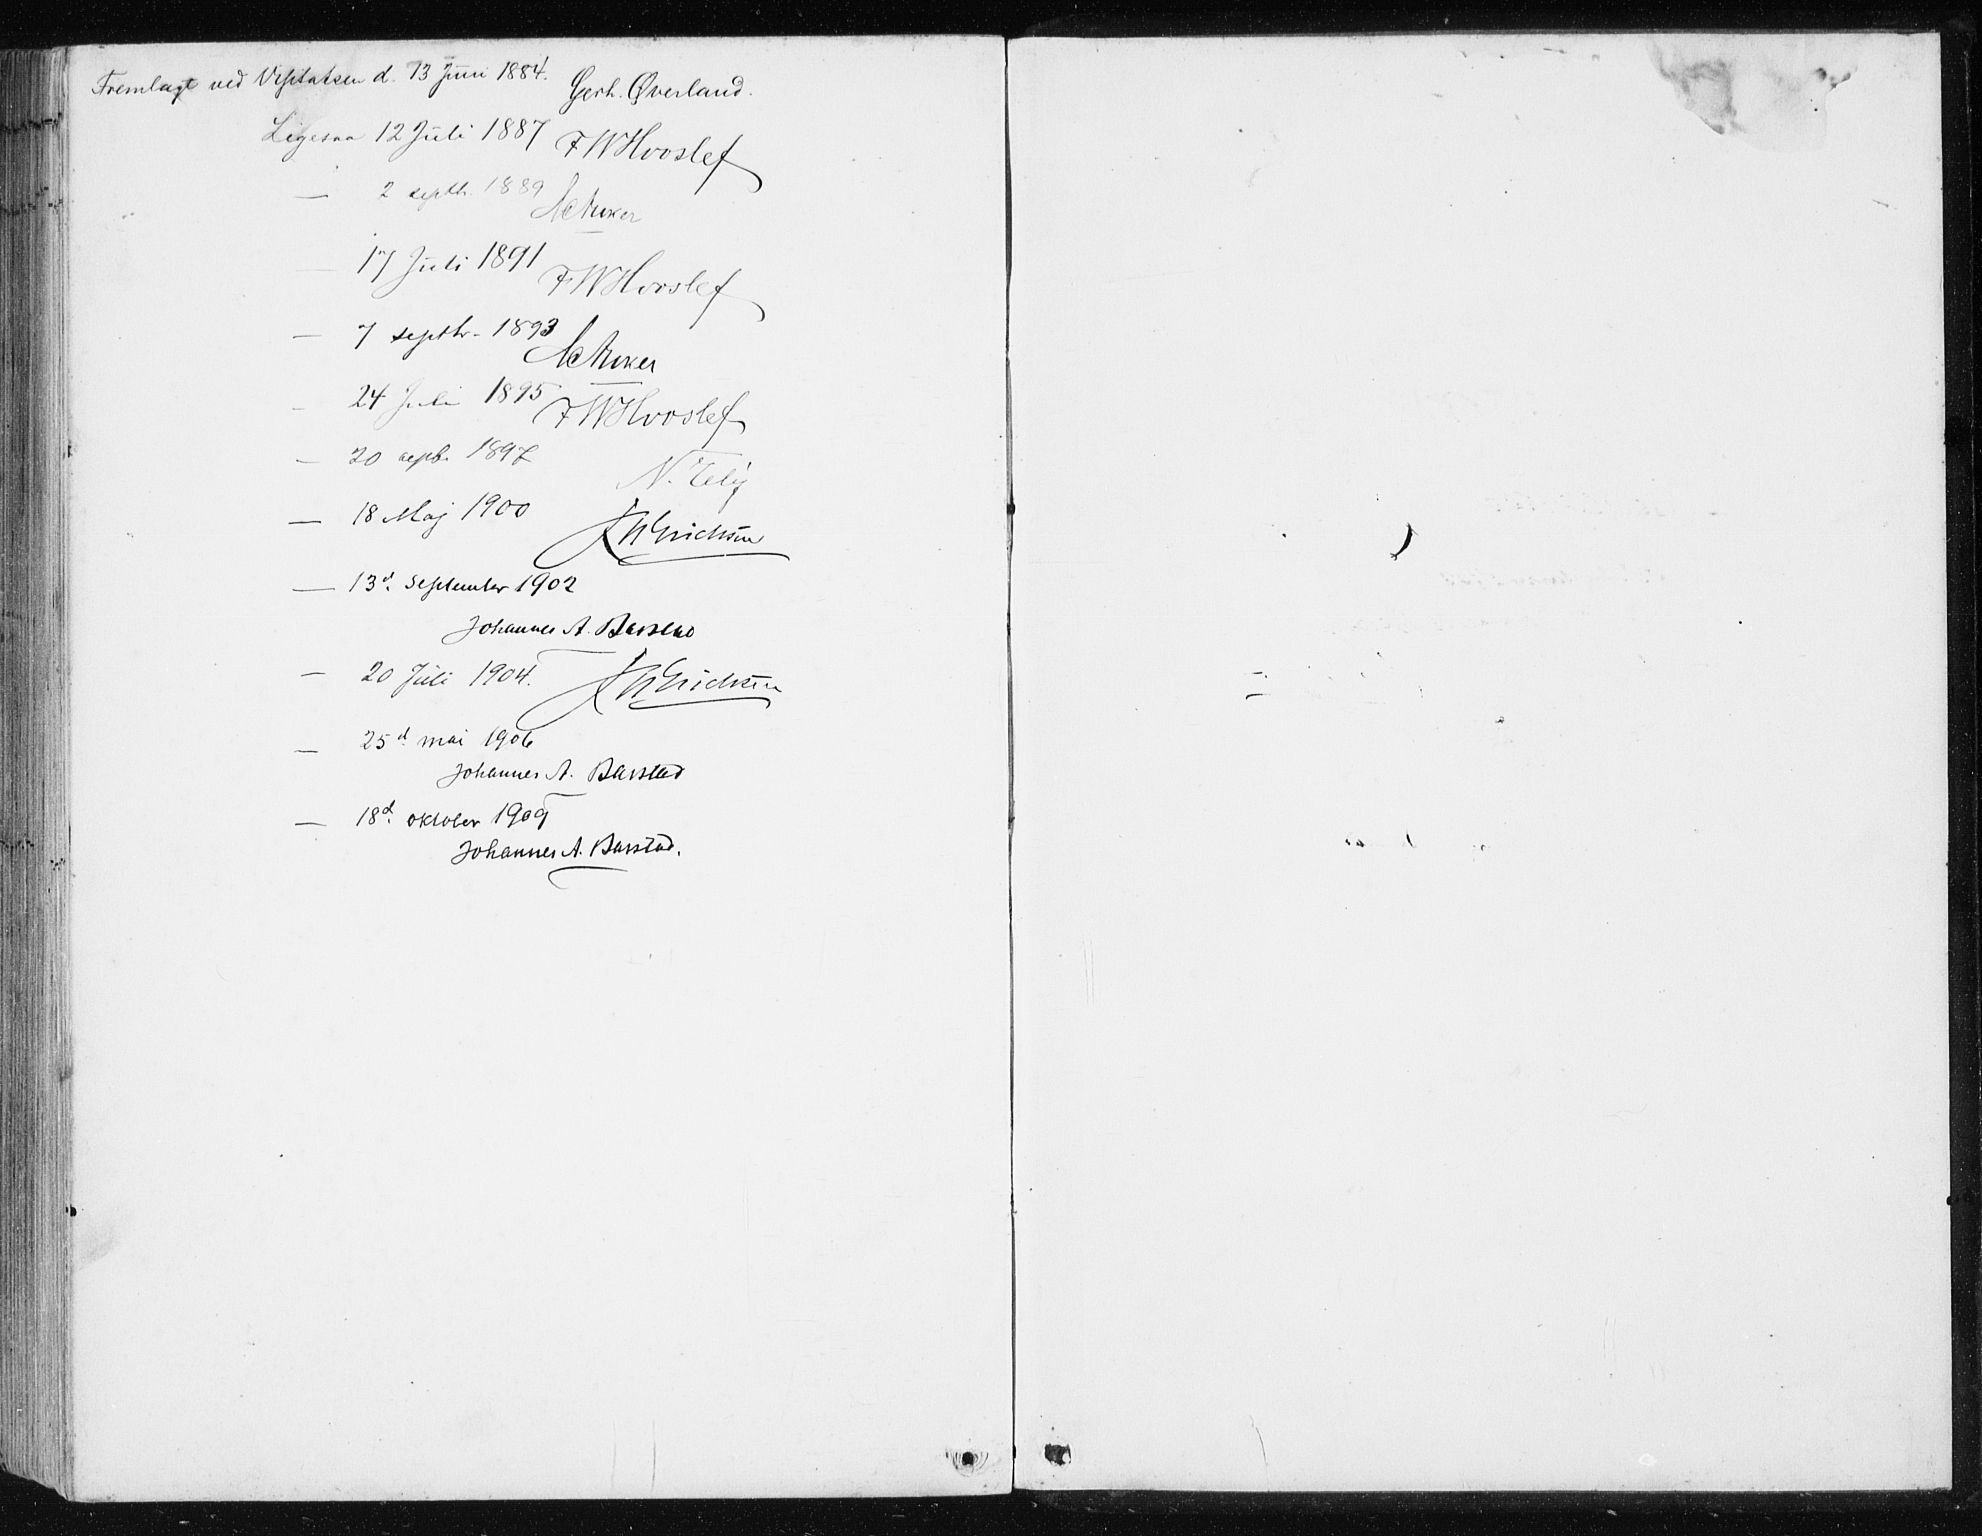 Fremlagt ved Visitatsen d. 13 Juni 1884. Gerh. Øverland.
Ligesaa 12 Juli 1887 FWHvoslef
— 2 septbr. 1889
— 17 Juli 1891 FWHvoslef
— 7 septbr. 1893
— 24 Juli 1895 FWHvoslef
— 20 septbr 1897
— 18 Maj 1900 Erichsen
— 13d. september 1902
Johannes A. Barstad
— 20 Juli 1904. Erichsen
— 25d. mai 1906
Johannes A. Barstad
— 18d. oktober 1909
Johannes A. Barstad.